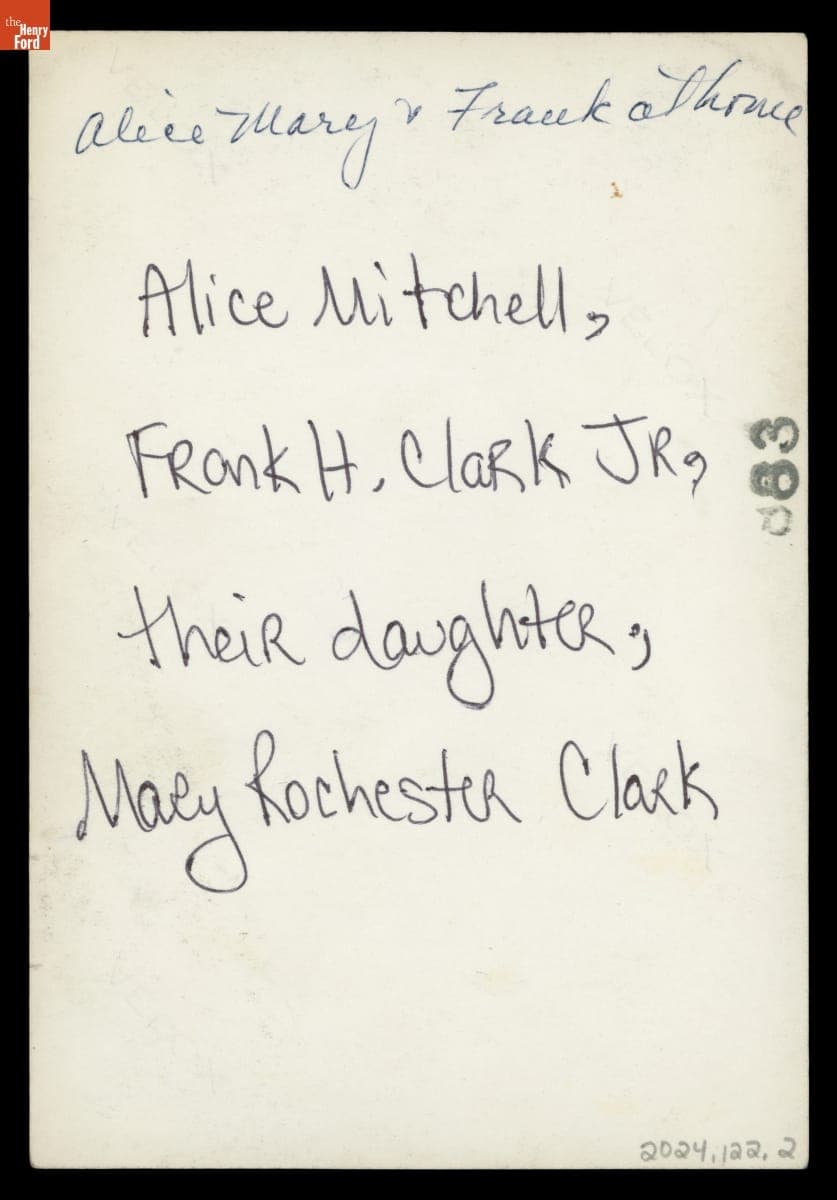 the
Henry
Ford
Alice Mary & Frank at home
Alice Mitchell,
Frank H. Clark JR,
their daughter,
Mary Rochester Clark
2024.122.2